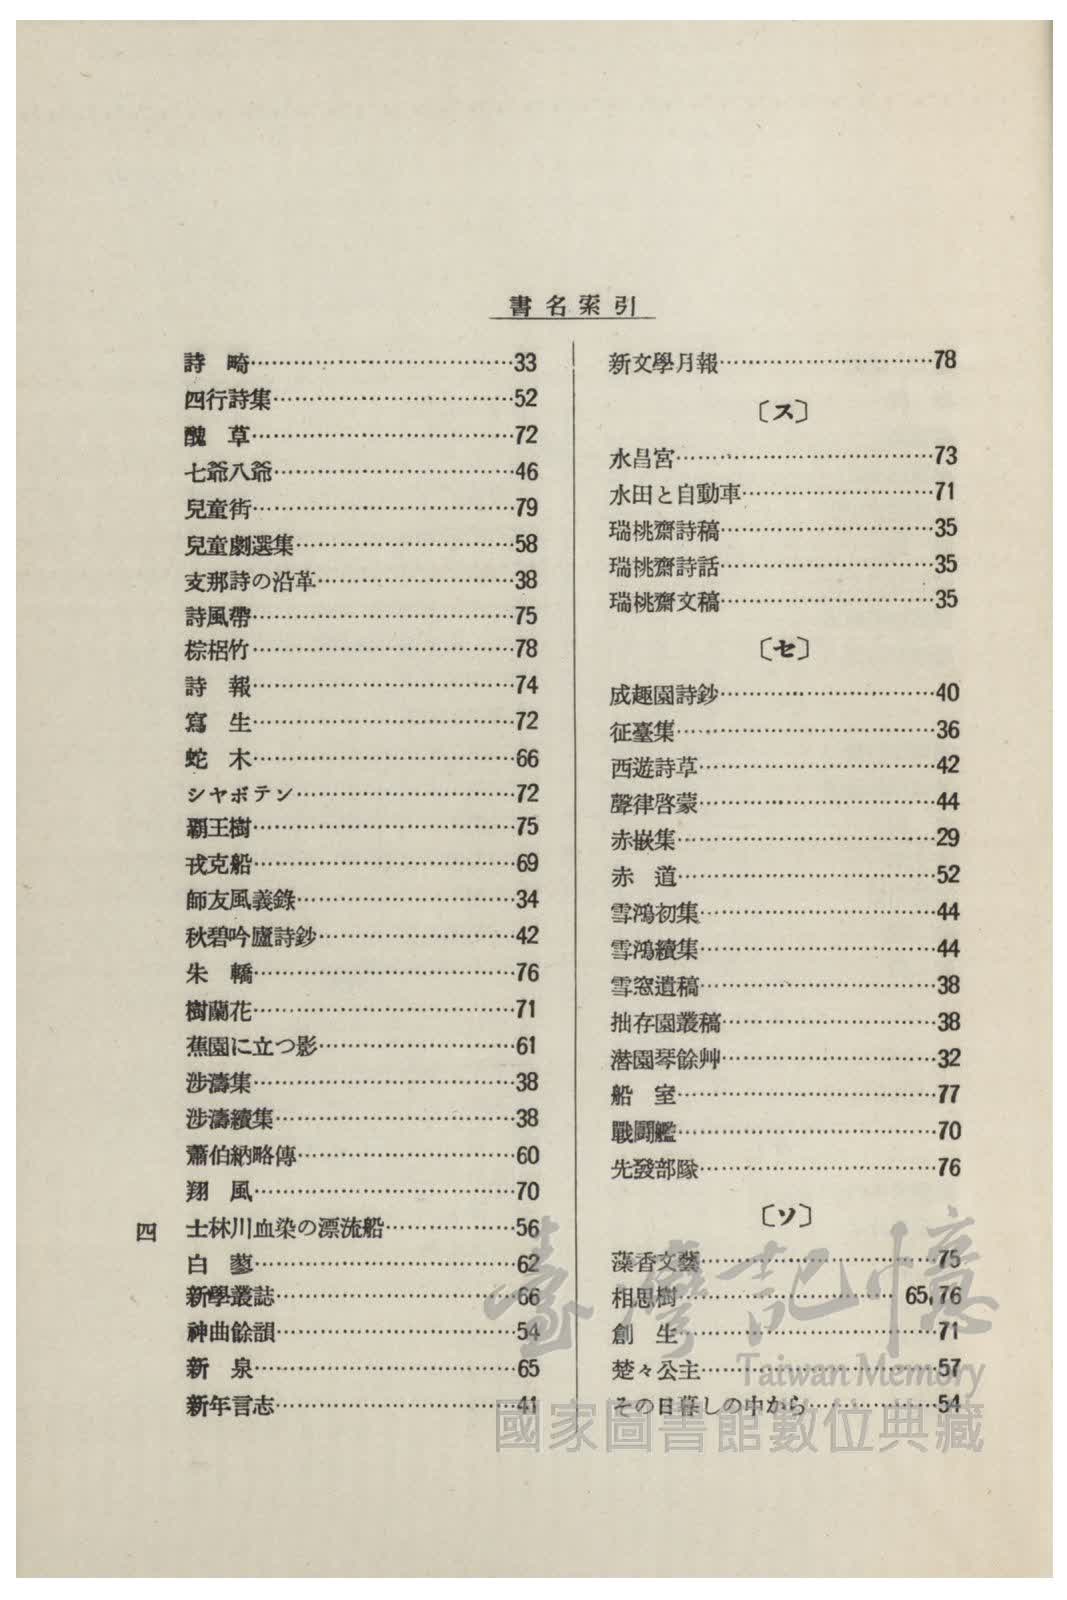 書名索引
詩　畸……33
四行詩集……52
醜　草……72
七爺八爺……46
兒童街……79
兒童劇選集……58
支那詩の沿革……38
詩風帶……75
棕梠竹……78
詩　報……74
寫　生……72
蛇　木……66
シヤボテン……72
覇王樹……75
戎克船……69
師友風義錄……34
秋碧吟廬詩鈔……42
朱　轎……76
樹蘭花……71
蕉園に立つ影……61
涉濤集……38
涉濤續集……38
蕭伯納略傳……60
翔　風……70
士林川血染の漂流船……56
白　蓼……62
新學叢誌……66
神曲餘韻……54
新　泉……65
新年言志……41
四
新文學月報……78
〔ス〕
水昌宮……73
水田と自動車……71
瑞桃齋詩稿……35
瑞桃齋詩話……35
瑞桃齋文稿……35
〔セ〕
成趣園詩鈔……40
征臺集……36
西遊詩草……42
聲律啓蒙……44
赤嵌集……29
赤　道……52
雪鴻初集……44
雪鴻續集……44
雪窓遺稿……38
拙存園叢稿……38
潜園琴餘艸……32
船　室……77
戰鬪艦……70
先發部隊……76
〔ソ〕
藻香文藝……75
相思樹……65, 76
創　生……71
楚々公主……57
その日暮しの中から……54
臺灣記憶
Taiwan Memory
國家圖書館數位典藏